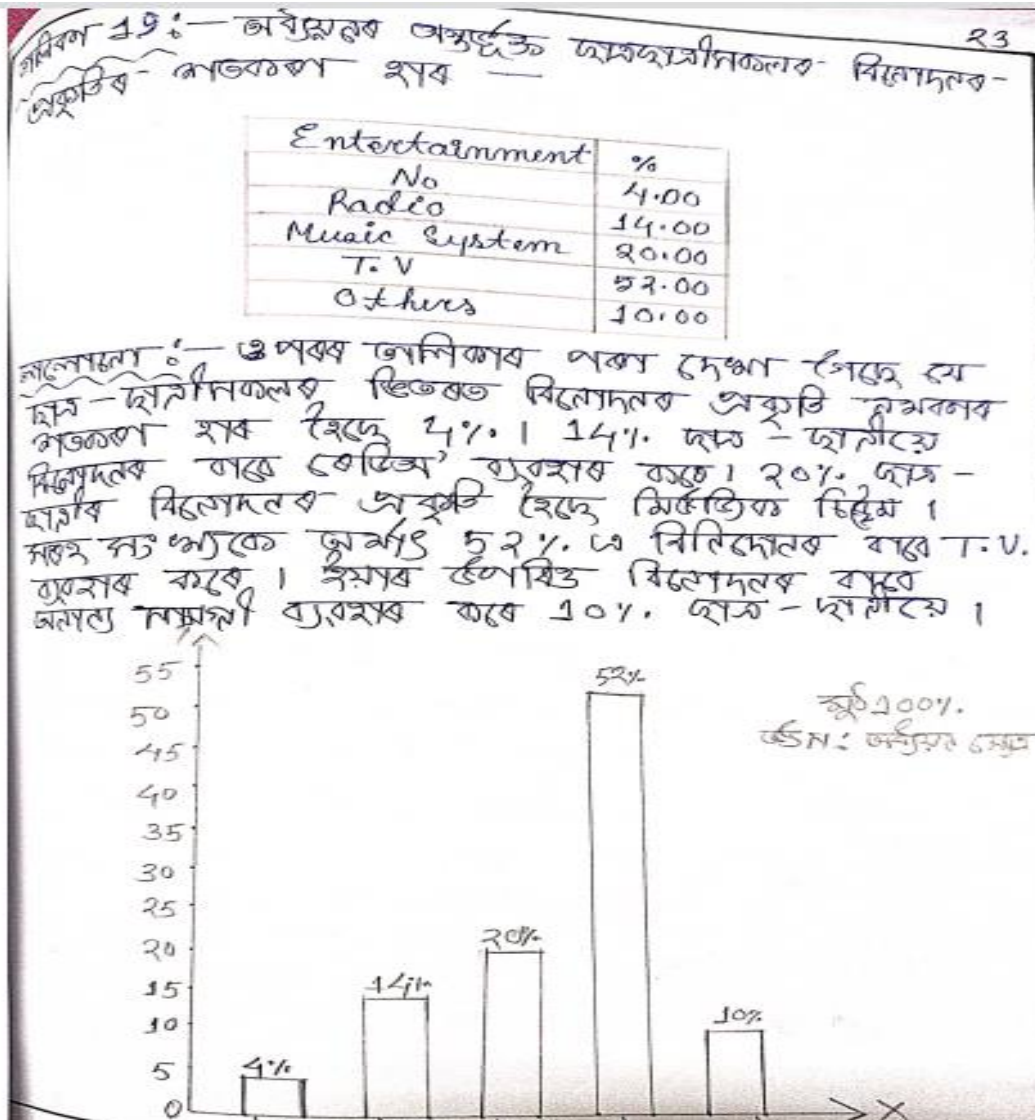 23
তালিকা 19 :— অধ্যয়নৰ অন্তৰ্ভুক্ত ছাত্ৰছাত্ৰীসকলৰ বিনোদনৰ-
প্ৰকৃতিৰ শতকৰা হাৰ —
Entertainment %
No 4.00
Radio 14.00
Music System 20.00
T.V 52.00
Others 10.00
:— ওপৰৰ তালিকাৰ পৰা দেখা গৈছে যে
ছাত্ৰ-ছাত্ৰীসকলৰ ভিতৰত বিনোদনৰ প্ৰকৃতি
শতকৰা হাৰ হৈছে 4%। 14% ছাত্ৰ-ছাত্ৰীয়ে
বিনোদনৰ বাবে ৰেডিঅ' ব্যৱহাৰ কৰে। 20% ছাত্ৰ-
ছাত্ৰীৰ বিনোদনৰ প্ৰকৃতি হৈছে মিউজিক চিষ্টেম।
সৰহ সংখ্যকে অৰ্থাৎ 52% এ বিনিদোনৰ বাবে T.V.
ব্যৱহাৰ কৰে। ইয়াৰ উপৰিও বিনোদনৰ বাবে
অন্যান্য সামগ্ৰী ব্যৱহাৰ কৰে 10% ছাত্ৰ-ছাত্ৰীয়ে।
মুঠ 100%.
উৎস: অধ্যয়ন ক্ষেত্ৰ
55
50
45
40
35
30
25
20
15
10
5
0
4%
14%
20%
52%
10%
X